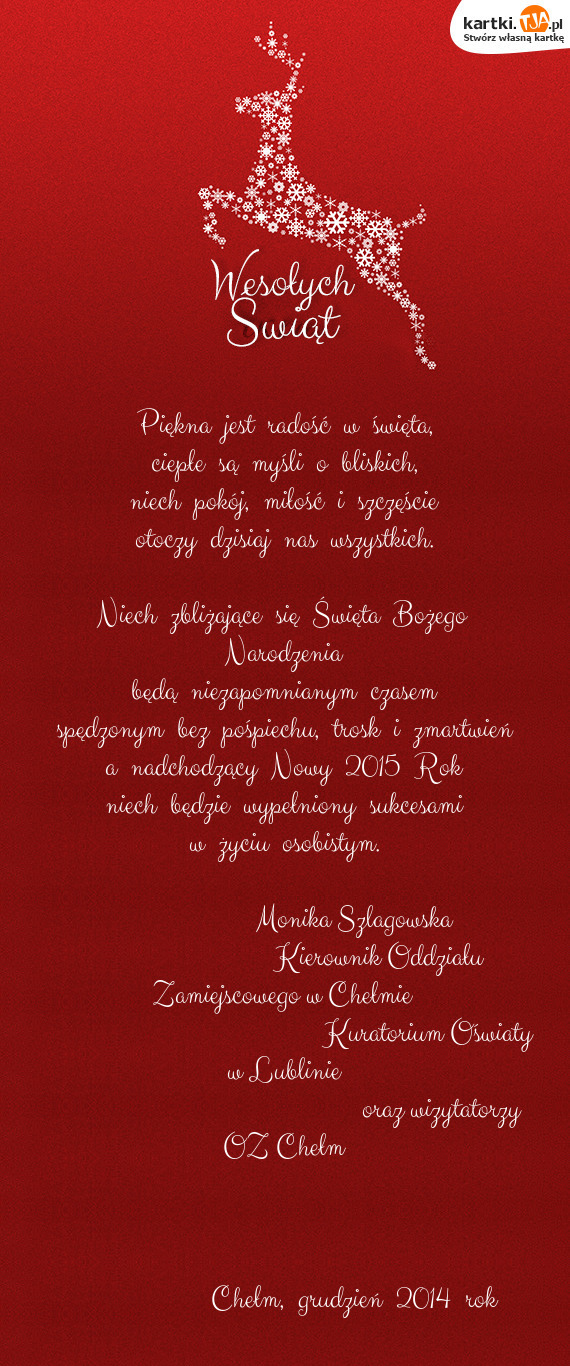 kartki.TJA.pl
Stwórz własną kartkę
Wesołych
Świąt
Piękna jest radość w święta,
ciepłe są myśli o bliskich,
niech pokój, miłość i szczęście
otoczy dzisiaj nas wszystkich.
Niech zbliżające się Święta Bożego
Narodzenia
będą niezapomnianym czasem
spędzonym bez pośpiechu, trosk i zmartwień
a nadchodzący Nowy 2015 Rok
niech będzie wypełniony sukcesami
w życiu osobistym.
Monika Szlagowska
Kierownik Oddziału
Zamiejscowego w Chełmie
Kuratorium Oświaty
w Lublinie
oraz wizytatorzy
OZ Chełm
Chełm, grudzień 2014 rok